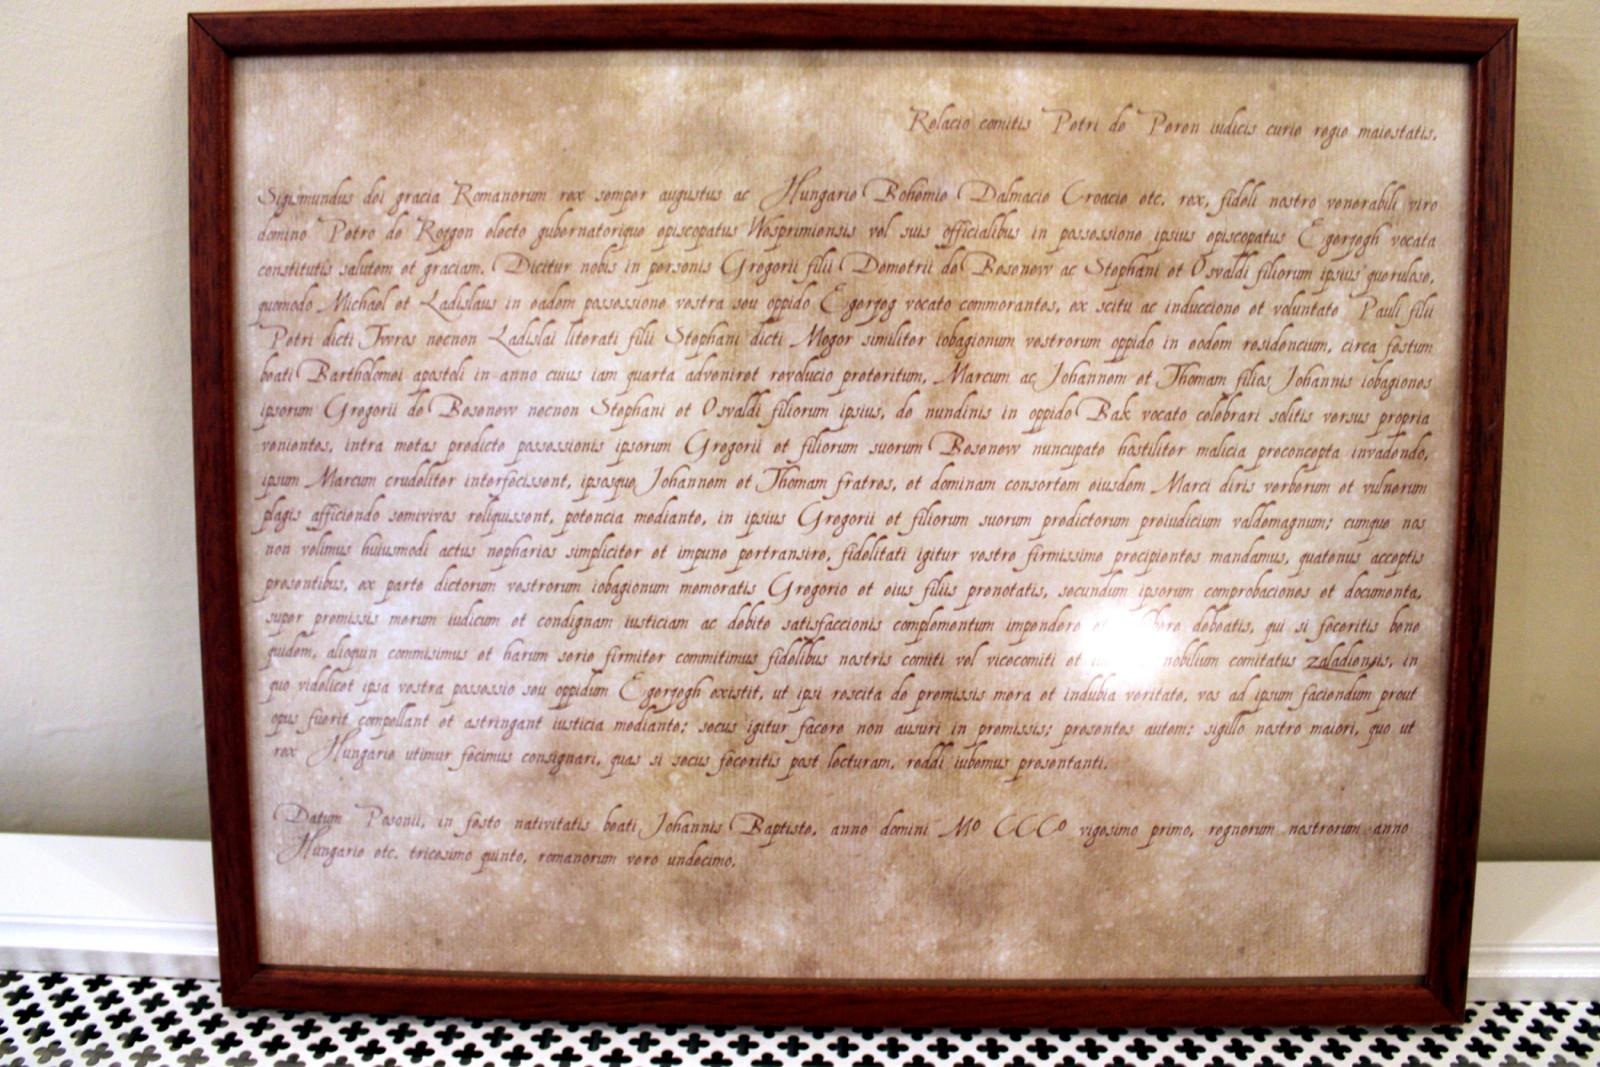 Relacio comitis Petri de Peren iudicis curie regie maiestatis.
Sigismundus dei gracia Romanorum rex semper augustus ac Hungarie Bohemie Dalmacie Croacie etc. rex, fideli nostro venerabili viro
domino Petro de Rozgon electo gubernatorique episcopatus Wesprimiensis vel suis officialibus in possessione ipsius episcopatus Egerzegh vocata
constitutis salutem et graciam. Dicitur nobis in personis Gregorii filii Demetrii de Besenew ac Stephani et Osvaldi filiorum ipsius querulose,
quomodo Michael et Ladislaus in eadem possessione vestra seu oppido Egerzeg vocato commorantes, ex scitu ac induccione et voluntate Pauli filii
Petri dicti Twros necnon Ladislai literati filii Stephani dicti Mogor similiter iobagionum vestrorum oppido in eodem residencium, circa festum
beati Bartholomei apostoli in anno cuius iam quarta adveniret revolucio preteritum, Marcum ac Johannem et Thomam filios Johannis iobagiones
ipsorum Gregorii de Besenew necnon Stephani et Osvaldi filiorum ipsius, de nundinis in oppido Bak vocato celebrari solitis versus propria
venientes, intra metas predicte possessionis ipsorum Gregorii et filiorum suorum Besenew nuncupate hostiliter malicia preconcepta invadendo,
ipsum Marcum crudeliter interfecissent, ipsosque Johannem et Thomam fratres, et dominam consortem eiusdem Marci diris verberum et vulnerum
plagis afficiendo semivivos reliquissent, potencia mediante, in ipsius Gregorii et filiorum suorum predictorum preiudicium valdemagnum; cumque nos
non velimus huiusmodi actus nepharios simpliciter et impune pertransire, fidelitati igitur vestre firmissime precipientes mandamus, quatenus acceptis
presentibus, ex parte dictorum vestrorum iobagionum memoratis Gregorio et eius filiis prenotatis, secundum ipsorum comprobaciones et documenta,
super premissis merum iudicum et condignam iusticiam ac debite satisfaccionis complementum impendere debeatis, qui si feceritis bene
quidem, alioquin commisimus et harum serie firmiter committimus fidelibus nostris comiti vel vicecomiti et nobilium comitatus zaladiensis, in
quo videlicet ipsa vestra possessio seu oppidum Egerzegh existit, ut ipsi rescita de premissis mera et indubia veritate, vos ad ipsum faciendum prout
opus fuerit compellant et astringant iusticia mediante; secus igitur facere non ausuri in premissis; presentes autem; sigillo nostro maiori, quo ut
rex Hungarie utimur fecimus consignari, quas si secus feceritis post lecturam, reddi iubemus presentanti.
Datum Posonii, in festo nativitatis beati Johannis Baptiste, anno domini Mo CCCCo vigesimo primo, regnorum nostrorum anno
Hungarie etc. tricesimo quinto, romanorum vero undecimo.